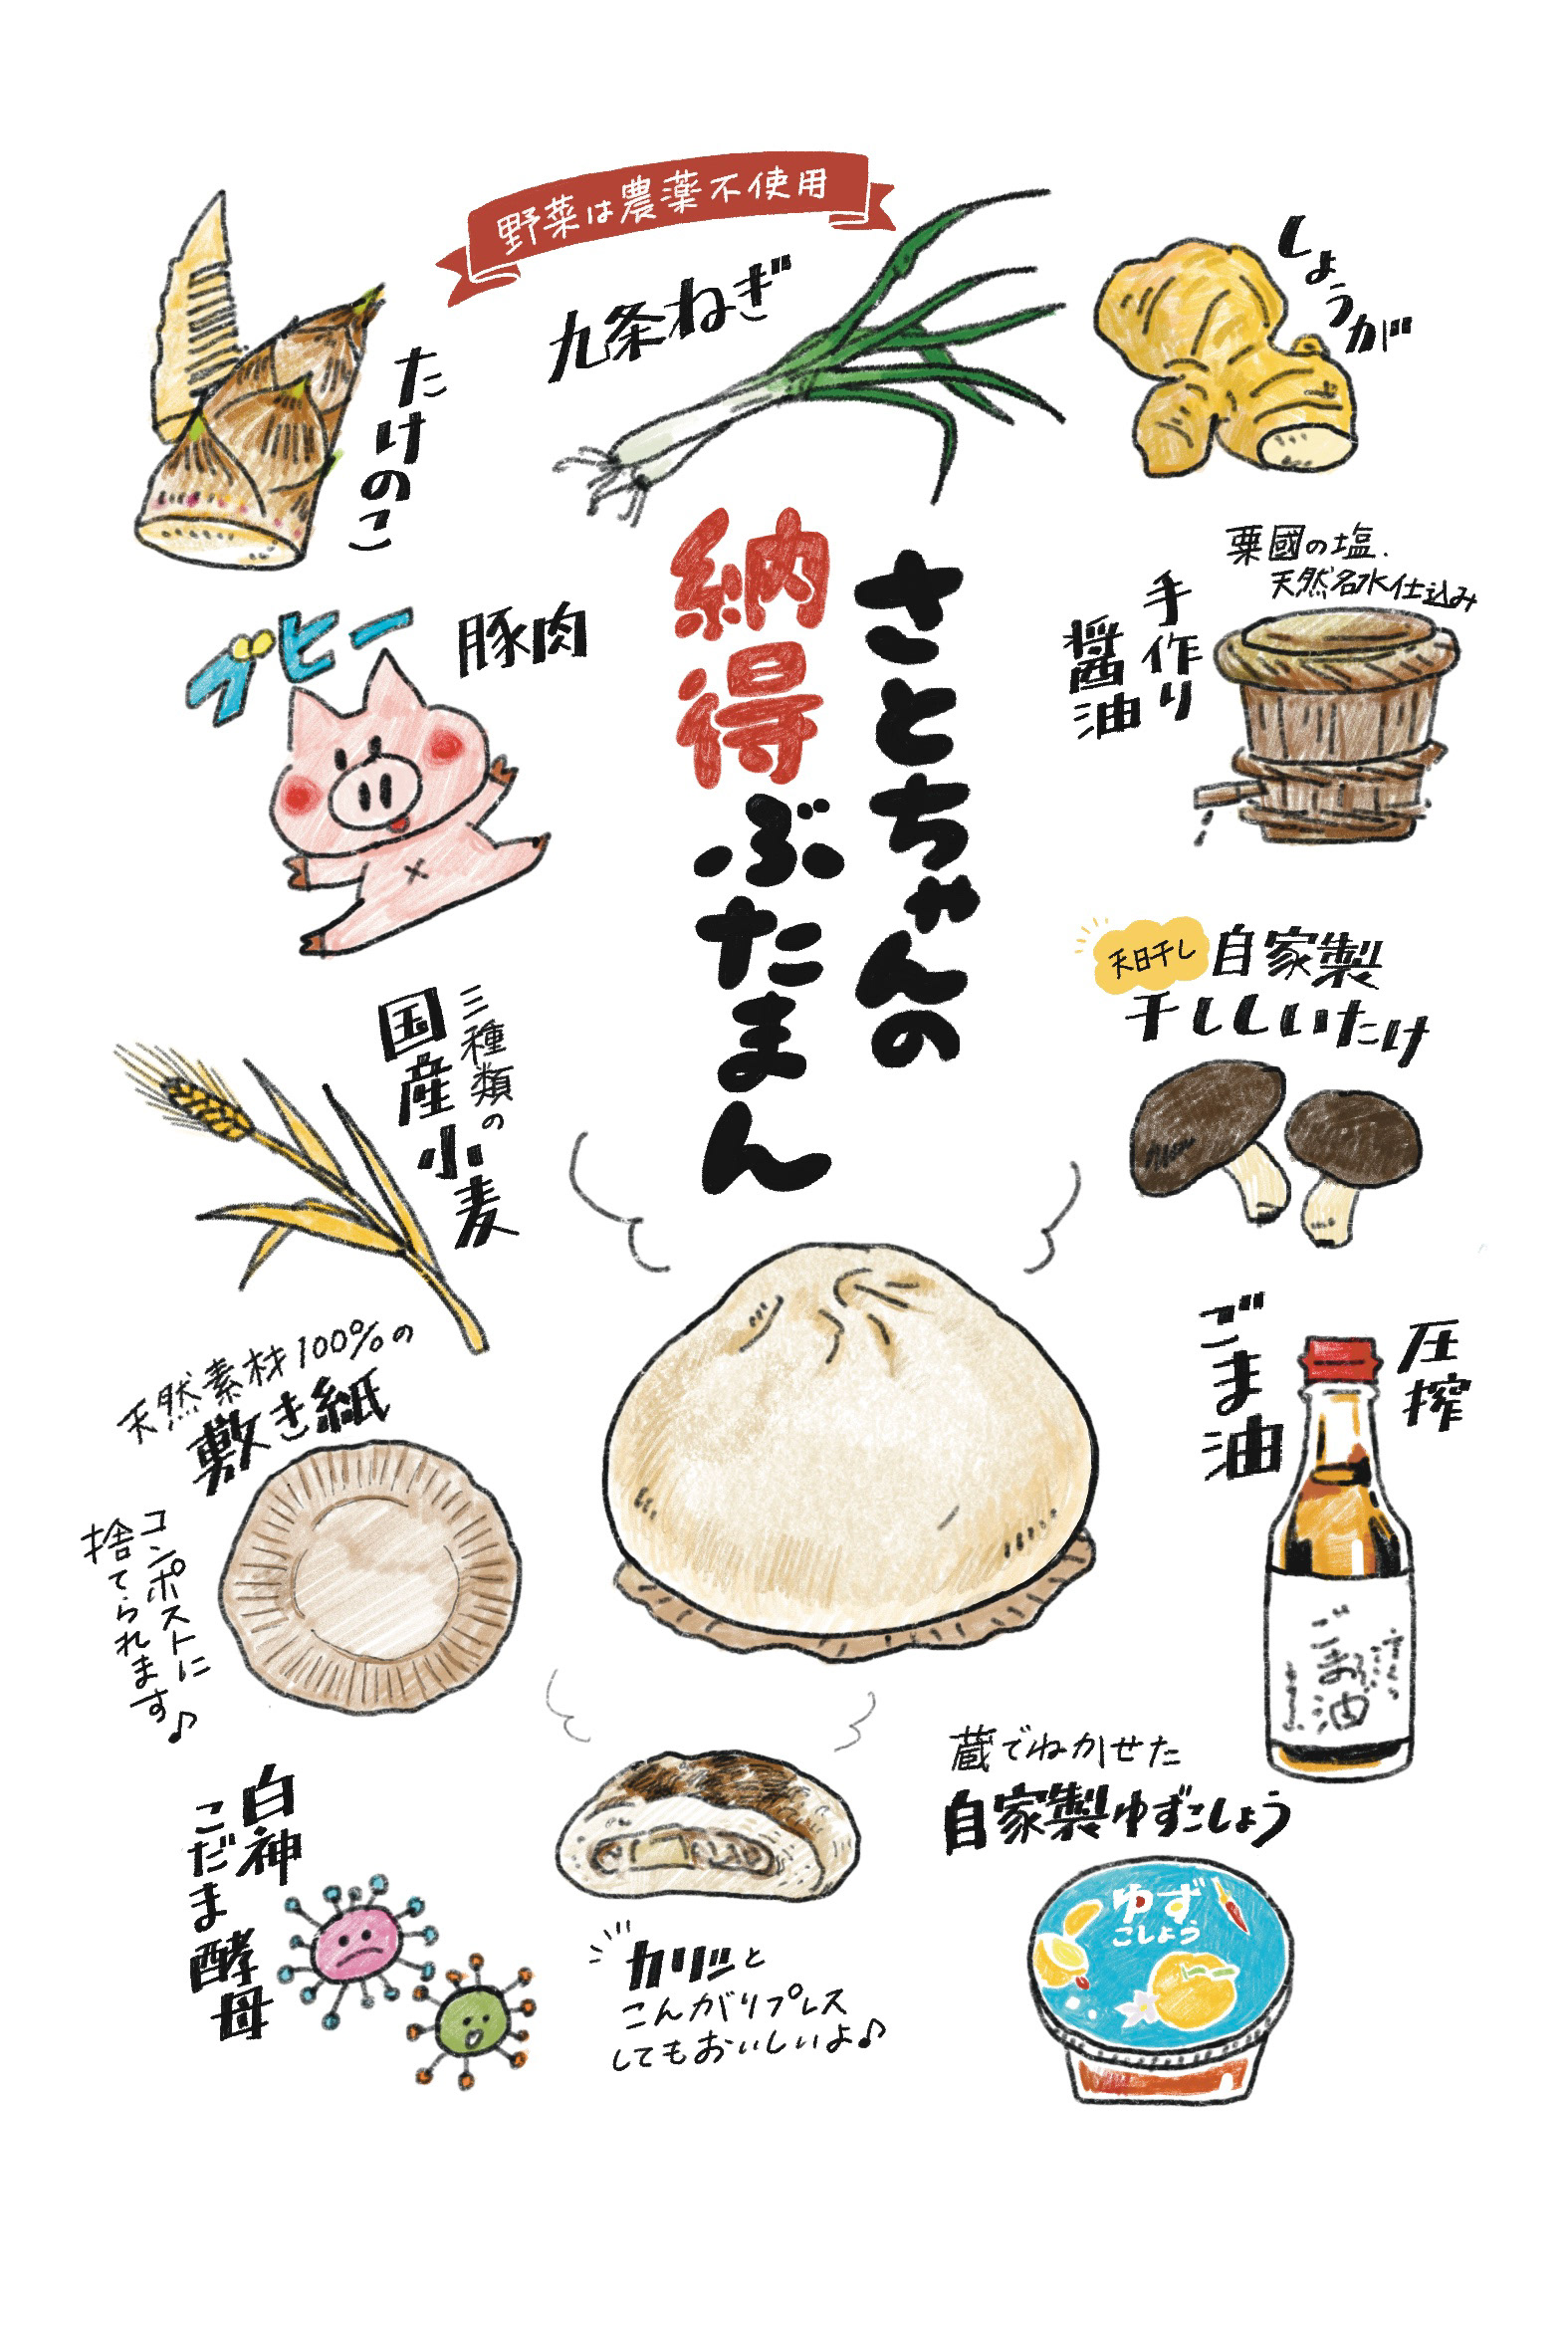 野菜は農薬不使用
たけのこ
九条ねぎ
しょうが
さとちゃんの
納得ぶたまん
ブヒー
豚肉
粟國の塩、
天然名水仕込み
手作り
醤油
天日干し
自家製
干ししいたけ
三種類の
国産小麦
圧搾
ごま油
ごま油
天然素材100%の
敷き紙
コンポストに
捨てられます♪
白神
こだま酵母
カリッと
こんがりプレス
してもおいしいよ♪
蔵でねかせた
自家製ゆずこしょう
ゆず
こしょう